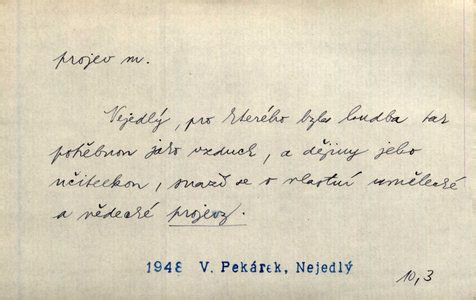 projev m.
Nejedlý, pro kterého byla hudba tak
potřebnou jako vzduch, a dějiny jeho
učitelkou, snaží se o vlastní umělecké
a vědecké projevy.
1948 V. Pekárek, Nejedlý
10,3